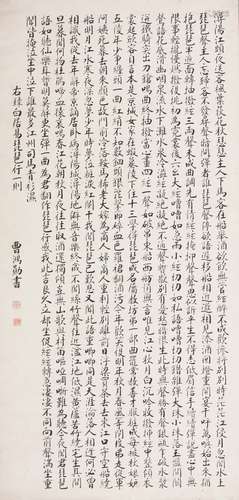 潯陽江頭夜送客楓葉荻花秋瑟瑟主人下馬客在船舉酒欲飲無管絃醉不成歡慘將別別時茫茫江浸月忽聞水上
琵琶聲主人忘歸客不發尋聲暗問彈者誰琵琶聲停欲語遲移船相近邀相見添酒迴燈重開宴千呼萬喚始出來猶
抱琵琶半遮面轉軸撥絃三兩聲未成曲調先有情絃絃掩抑聲聲思似訴平生不得志低眉信手續續彈說盡心中無
限事輕攏慢撚抹復挑初為霓裳後六幺大絃嘈嘈如急雨小絃切切如私語嘈嘈切切錯雜彈大珠小珠落玉盤間關
鶯語花底滑幽咽泉流水下灘水泉冷澀絃凝絕凝絕不通聲漸歇別有幽愁暗恨生此時無聲勝有聲銀瓶乍破水漿
迸鐵騎突出刀鎗鳴曲終抽撥當心畫四絃一聲如裂帛東船西舫悄無言唯見江心秋月白沉吟收撥插絃中整頓衣
裳起斂容自言本是京城女家在蝦蟆陵下住十三學得琵琶成名屬教坊第一部曲罷常教善才服妝成每被秋娘妒
五陵年少爭纏頭一曲紅綃不知數鈿頭銀篦擊節碎血色羅裙翻酒污今年歡笑復明年秋月春風等閒度弟走從軍
阿姨死暮去朝來顏色故門前冷落車馬稀老大嫁作商人婦商人重利輕別離前月浮梁買茶去去來江口守空船繞
船明月江水寒夜深忽夢少年事夢啼妝淚紅闌干我聞琵琶已歎息又聞此語重唧唧同是天涯淪落人相逢何必曾
相識我從去年辭帝京謫居臥病潯陽城潯陽地僻無音樂終歲不聞絲竹聲住近湓江地低濕黃蘆苦竹繞宅生其間
旦暮聞何物杜鵑啼血猿哀鳴春江花朝秋月夜往往取酒還獨傾豈無山歌與村笛嘔啞嘲哳難為聽今夜聞君琵琶
語如聽仙樂耳暫明莫辭更坐彈一曲為君翻作琵琶行感我此言良久立卻坐促絃絃轉急淒淒不同向前聲滿座重
聞皆掩泣座中泣下誰最多江州司馬青衫濕
右錄白居易琵琶行一則
曹鴻勛書